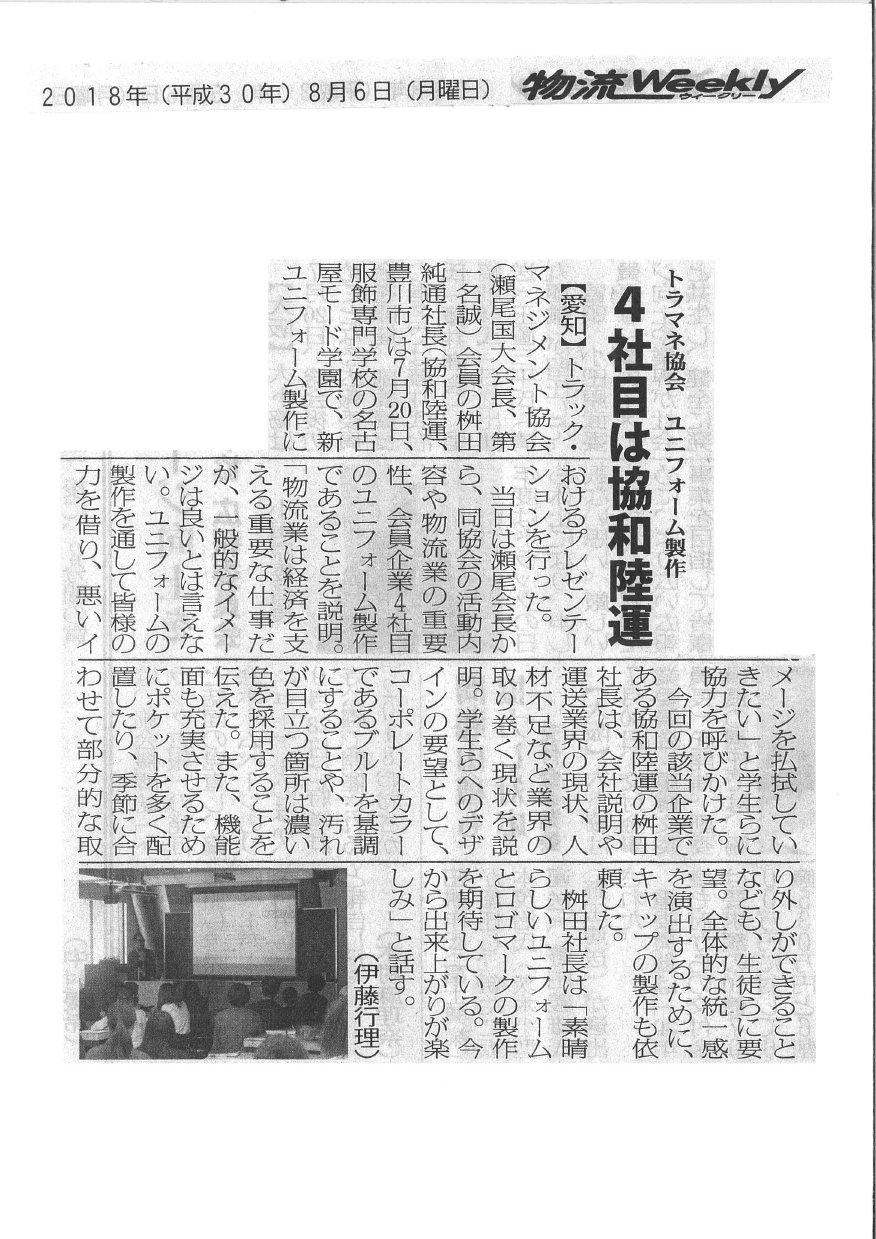 2018年（平成30年）8月6日（月曜日）
物流Weekly
ウィークリー
トラマネ協会　ユニフォーム製作
4社目は協和陸運
【愛知】トラック・
マネジメント協会
（瀬尾国大会長、第
一名誠）会員の桝田
純通社長（協和陸運、
豊川市）は7月20日、
服飾専門学校の名古
屋モード学園で、新
ユニフォーム製作に
おけるプレゼンテー
ションを行った。
当日は瀬尾会長か
ら、同協会の活動内
容や物流業の重要
性、会員企業4社目
のユニフォーム製作
であることを説明。
「物流業は経済を支
える重要な仕事だ
が、一般的なイメー
ジは良いとは言えな
い。ユニフォームの
製作を通して皆様の
力を借り、悪いイ
メージを払拭してい
きたい」と学生らに
協力を呼びかけた。
今回の該当企業で
ある協和陸運の桝田
社長は、会社説明や
運送業界の現状、人
材不足など業界の
取り巻く現状を説
明。学生らへのデザ
インの要望として、
コーポレートカラー
であるブルーを基調
にすることや、汚れ
が目立つ箇所は濃い
色を採用することを
伝えた。また、機能
面も充実させるため
にポケットを多く配
置したり、季節に合
わせて部分的な取
り外しができること
なども、生徒らに要
望。全体的な統一感
を演出するために、
キャップの製作も依
頼した。
桝田社長は「素晴
らしいユニフォーム
とロゴマークの製作
を期待している。今
から出来上がりが楽
しみ」と話す。
（伊藤行理）